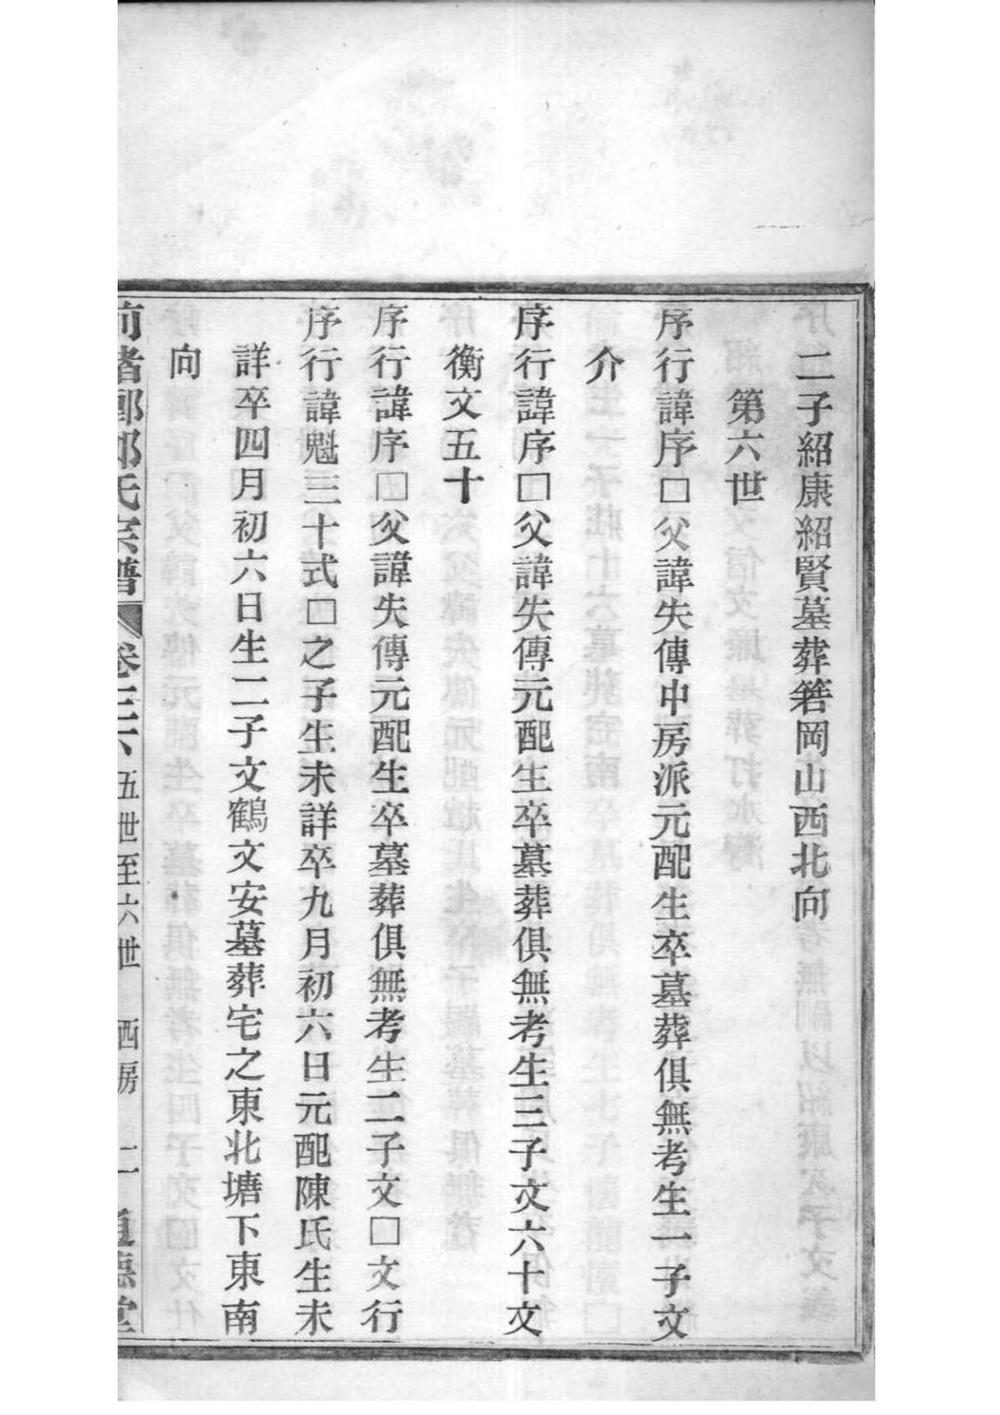 二子紹康紹賢墓葬箬岡山西北向
第六世
序行諱序□父諱失傳中房派元配生卒墓葬俱無考生一子文
介
序行諱序□父諱失傳元配生卒墓葬俱無考生三子文六十文
衡文五十
序行諱序□父諱失傳元配生卒墓葬俱無考生二子文□文行
序行諱魁三十式□之子生未詳卒九月初六日元配陳氏生未
詳卒四月初六日生二子文鶴文安墓葬宅之東北塘下東南
向
前渚鄭郎氏宗譜 卷三六 五世至六世 西房 二 道德堂